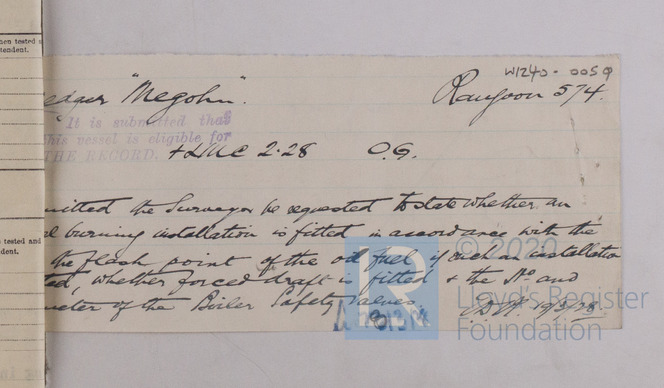 hen tested
tendent.
W1240-0059
edger "Megohn". Rangoon 574.
It is submitted that
this vessel is eligible for
THE RECORD. + LMC 2.28 O.G.
mitted the Surveyor be requested to state whether an
l burning installation is fitted in accordance with the
the flash point of the oil fuel if such an installation
ted, whether forced draft is fitted & the No and
meter of the Boiler Safety Valves.
tested and
dent.
© 2020
Lloyd's Register
Foundation